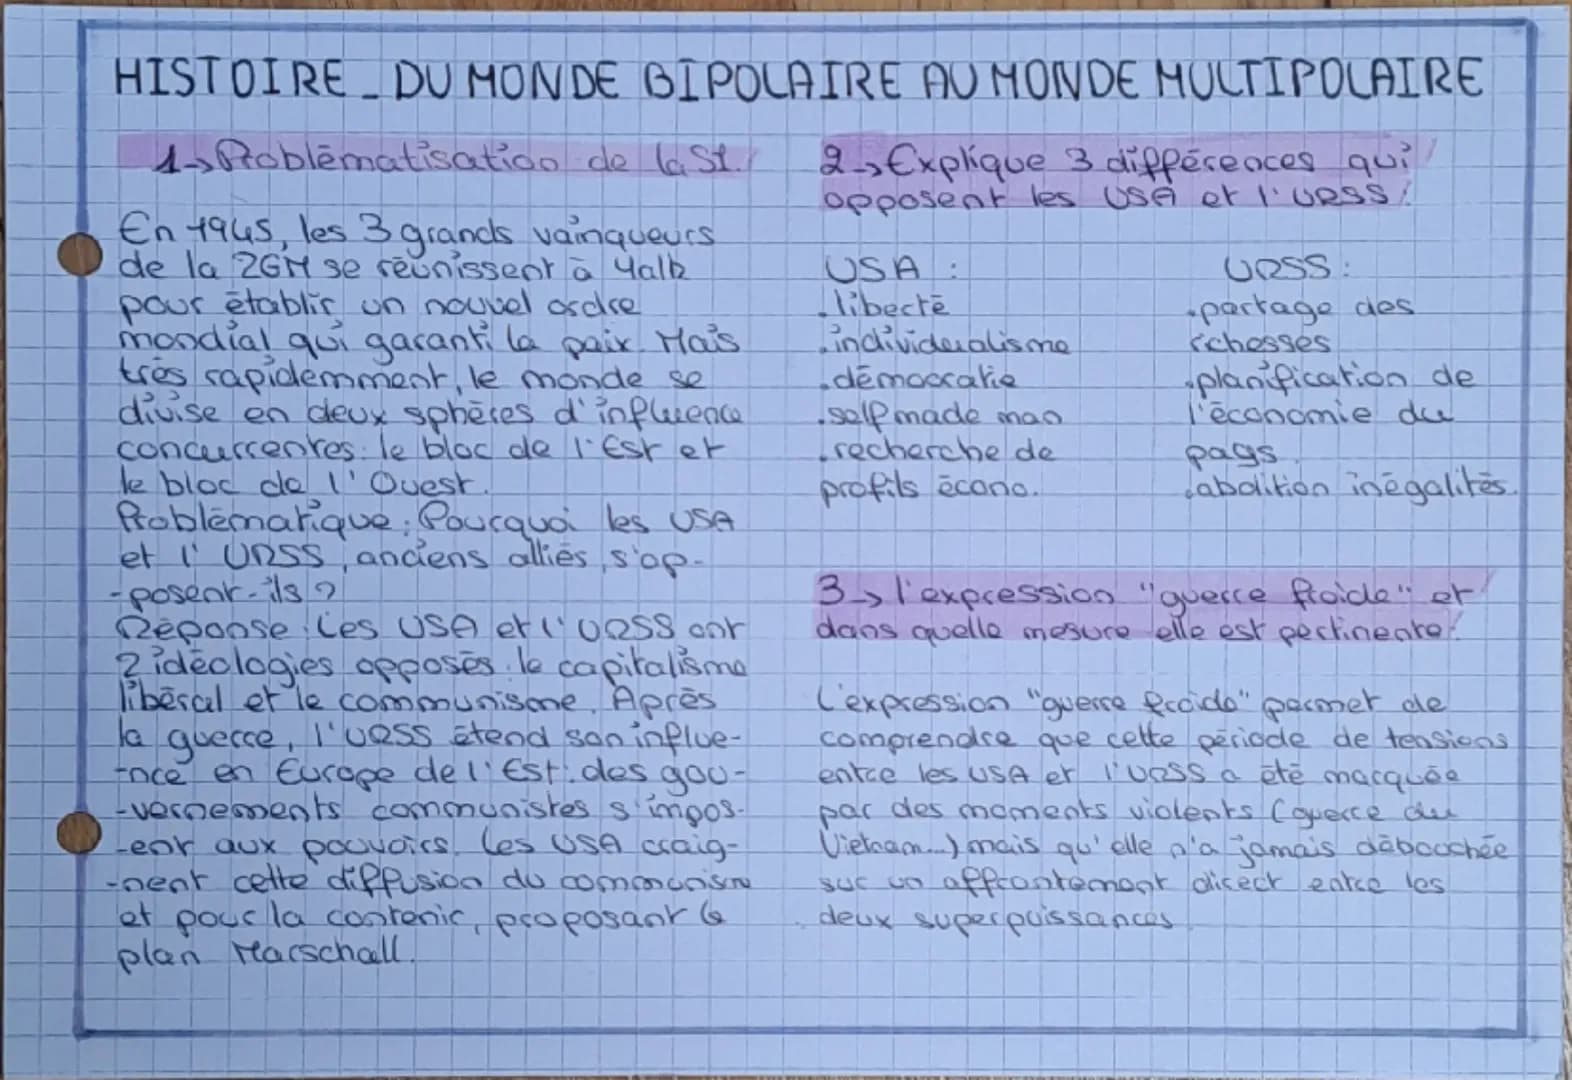 HISTOIRE_DU MONDE BIPOLAIRE AU MONDE MULTIPOLAIRE
1→Problématisation de la S1.
En 1945, les 3 grands vainqueurs
de la 2GM se réunissent à Yalta
pour établir un nouvel ordre
mondial qui garanti la paix. Mais
très rapidemment, le monde se
divise en deux sphères d'influence
concurrentes: le bloc de l'Est et
le bloc de l'Ouest.
Problématique: Pourquoi les USA
et l'URSS, anciens alliés, s'op-
-posent-ils ?
Réponse: Les USA et l'URSS ont
2 idéologies opposés: le capitalisme
libéral et le communisme. Après
la guerre, l'URSS étend son influe-
-nce en Europe de l'Est: des gou-
-vernements communistes s'impos-
-ent aux pouvoirs. Les USA craig-
-nent cette diffusion du communisme
et pour la contenir, proposant le
plan Marschall.
2→Explique 3 différences qui
opposent les USA et l'URSS.
USA :
.liberté
.individualisme
.démocratie
.self made man
.recherche de
profils écono.
URSS:
.partage des
richesses
.planification de
l'économie du
pays.
.abolition inégalités.
3→l'expression "guerre froide" et
dans quelle mesure elle est pertinente.
L'expression "guerre froide" permet de
comprendre que cette période de tensions
entre les USA et l'URSS a été marquée
par des moments violents (guerre du
Vietnam...) mais qu'elle n'a jamais débouchée
sur un affrontement direct entre les
deux superpuissances.